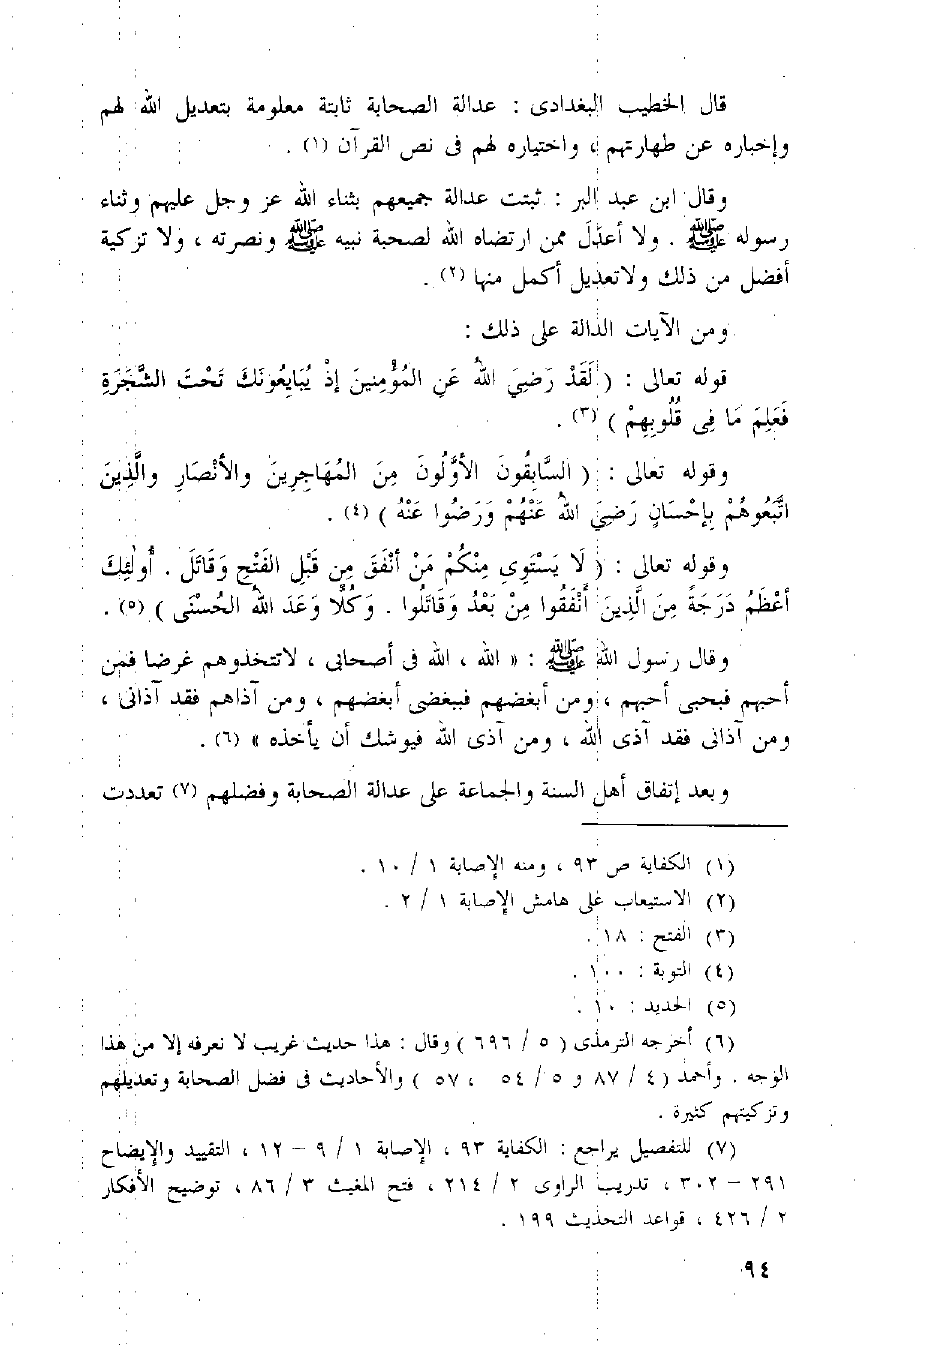 قال الخطيب البغدادى : عدالة الصحابة ثابتة معلومة بتعديل الله لهم
وإخباره عن طهارتهم ، واختياره لهم فى نص القرآن (١) .
وقال ابن عبد البر : ثبتت عدالة جميعهم بثناء الله عز وجل عليهم وثناء
رسوله ﷺ . ولا أعدَلَ ممن ارتضاه الله لصحبة نبيه ﷺ ونصرته ، ولا تزكية
أفضل من ذلك ولاتعديل أكمل منها (٢) .
ومن الآيات الدالة على ذلك :
قوله تعالى : ( لَقَدْ رَضِيَ اللهُ عَنِ المُؤْمِنينَ إذْ يُبَايِعُونَكَ تَحْتَ الشَّجَرَةِ
فَعَلِمَ مَا فِى قُلُوبِهِمْ ) (٣) .
وقوله تعالى : ( السَّابِقُونَ الأوَّلُونَ مِنَ المُهَاجِرِينَ والأنْصَارِ والَّذِينَ
اتَّبَعُوهُمْ بِإحْسَانٍ رَضِيَ اللهُ عَنْهُمْ وَرَضُوا عَنْهُ ) (٤) .
وقوله تعالى : ( لَا يَسْتَوِى مِنْكُمْ مَنْ أنْفَقَ مِن قَبْلِ الفَتْحِ وَقَاتَلَ . أُولَٰئِكَ
أعْظَمُ دَرَجَةً مِنَ الَّذِينَ أَنْفَقُوا مِنْ بَعْدُ وَقَاتَلُوا . وَكُلًّا وَعَدَ اللهُ الحُسْنَى ) (٥) .
وقال رسول الله ﷺ : « الله ، الله فى أصحابى ، لاتتخذوهم غرضا فمن
أحبهم فبحبى أحبهم ، ومن أبغضهم فببغضى أبغضهم ، ومن آذاهم فقد آذانى ،
ومن آذانى فقد آذى الله ، ومن آذى الله فيوشك أن يأخذه » (٦) .
وبعد إتفاق أهل السنة والجماعة على عدالة الصحابة وفضلهم (٧) تعددت
(١) الكفاية ص ٩٣ ، ومنه الإصابة ١ / ١٠ .
(٢) الاستيعاب على هامش الإصابة ١ / ٢ .
(٣) الفتح : ١٨ .
(٤) التوبة : ١٠٠ .
(٥) الحديد : ١٠ .
(٦) أخرجه الترمذى ( ٥ / ٦٩٦ ) وقال : هذا حديث غريب لا نعرفه إلا من هذا
الوجه . وأحمد ( ٤ / ٨٧ و ٥ / ٥٤ ، ٥٧ ) والأحاديث فى فضل الصحابة وتعديلهم
وتزكيتهم كثيرة .
(٧) للتفصيل يراجع : الكفاية ٩٣ ، الإصابة ١ / ٩ – ١٢ ، التقييد والإيضاح
٢٩١ – ٣٠٢ ، تدريب الراوى ٢ / ٢١٤ ، فتح المغيث ٣ / ٨٦ ، توضيح الأفكار
٢ / ٤٢٦ ، قواعد التحديث ١٩٩ .
٩٤